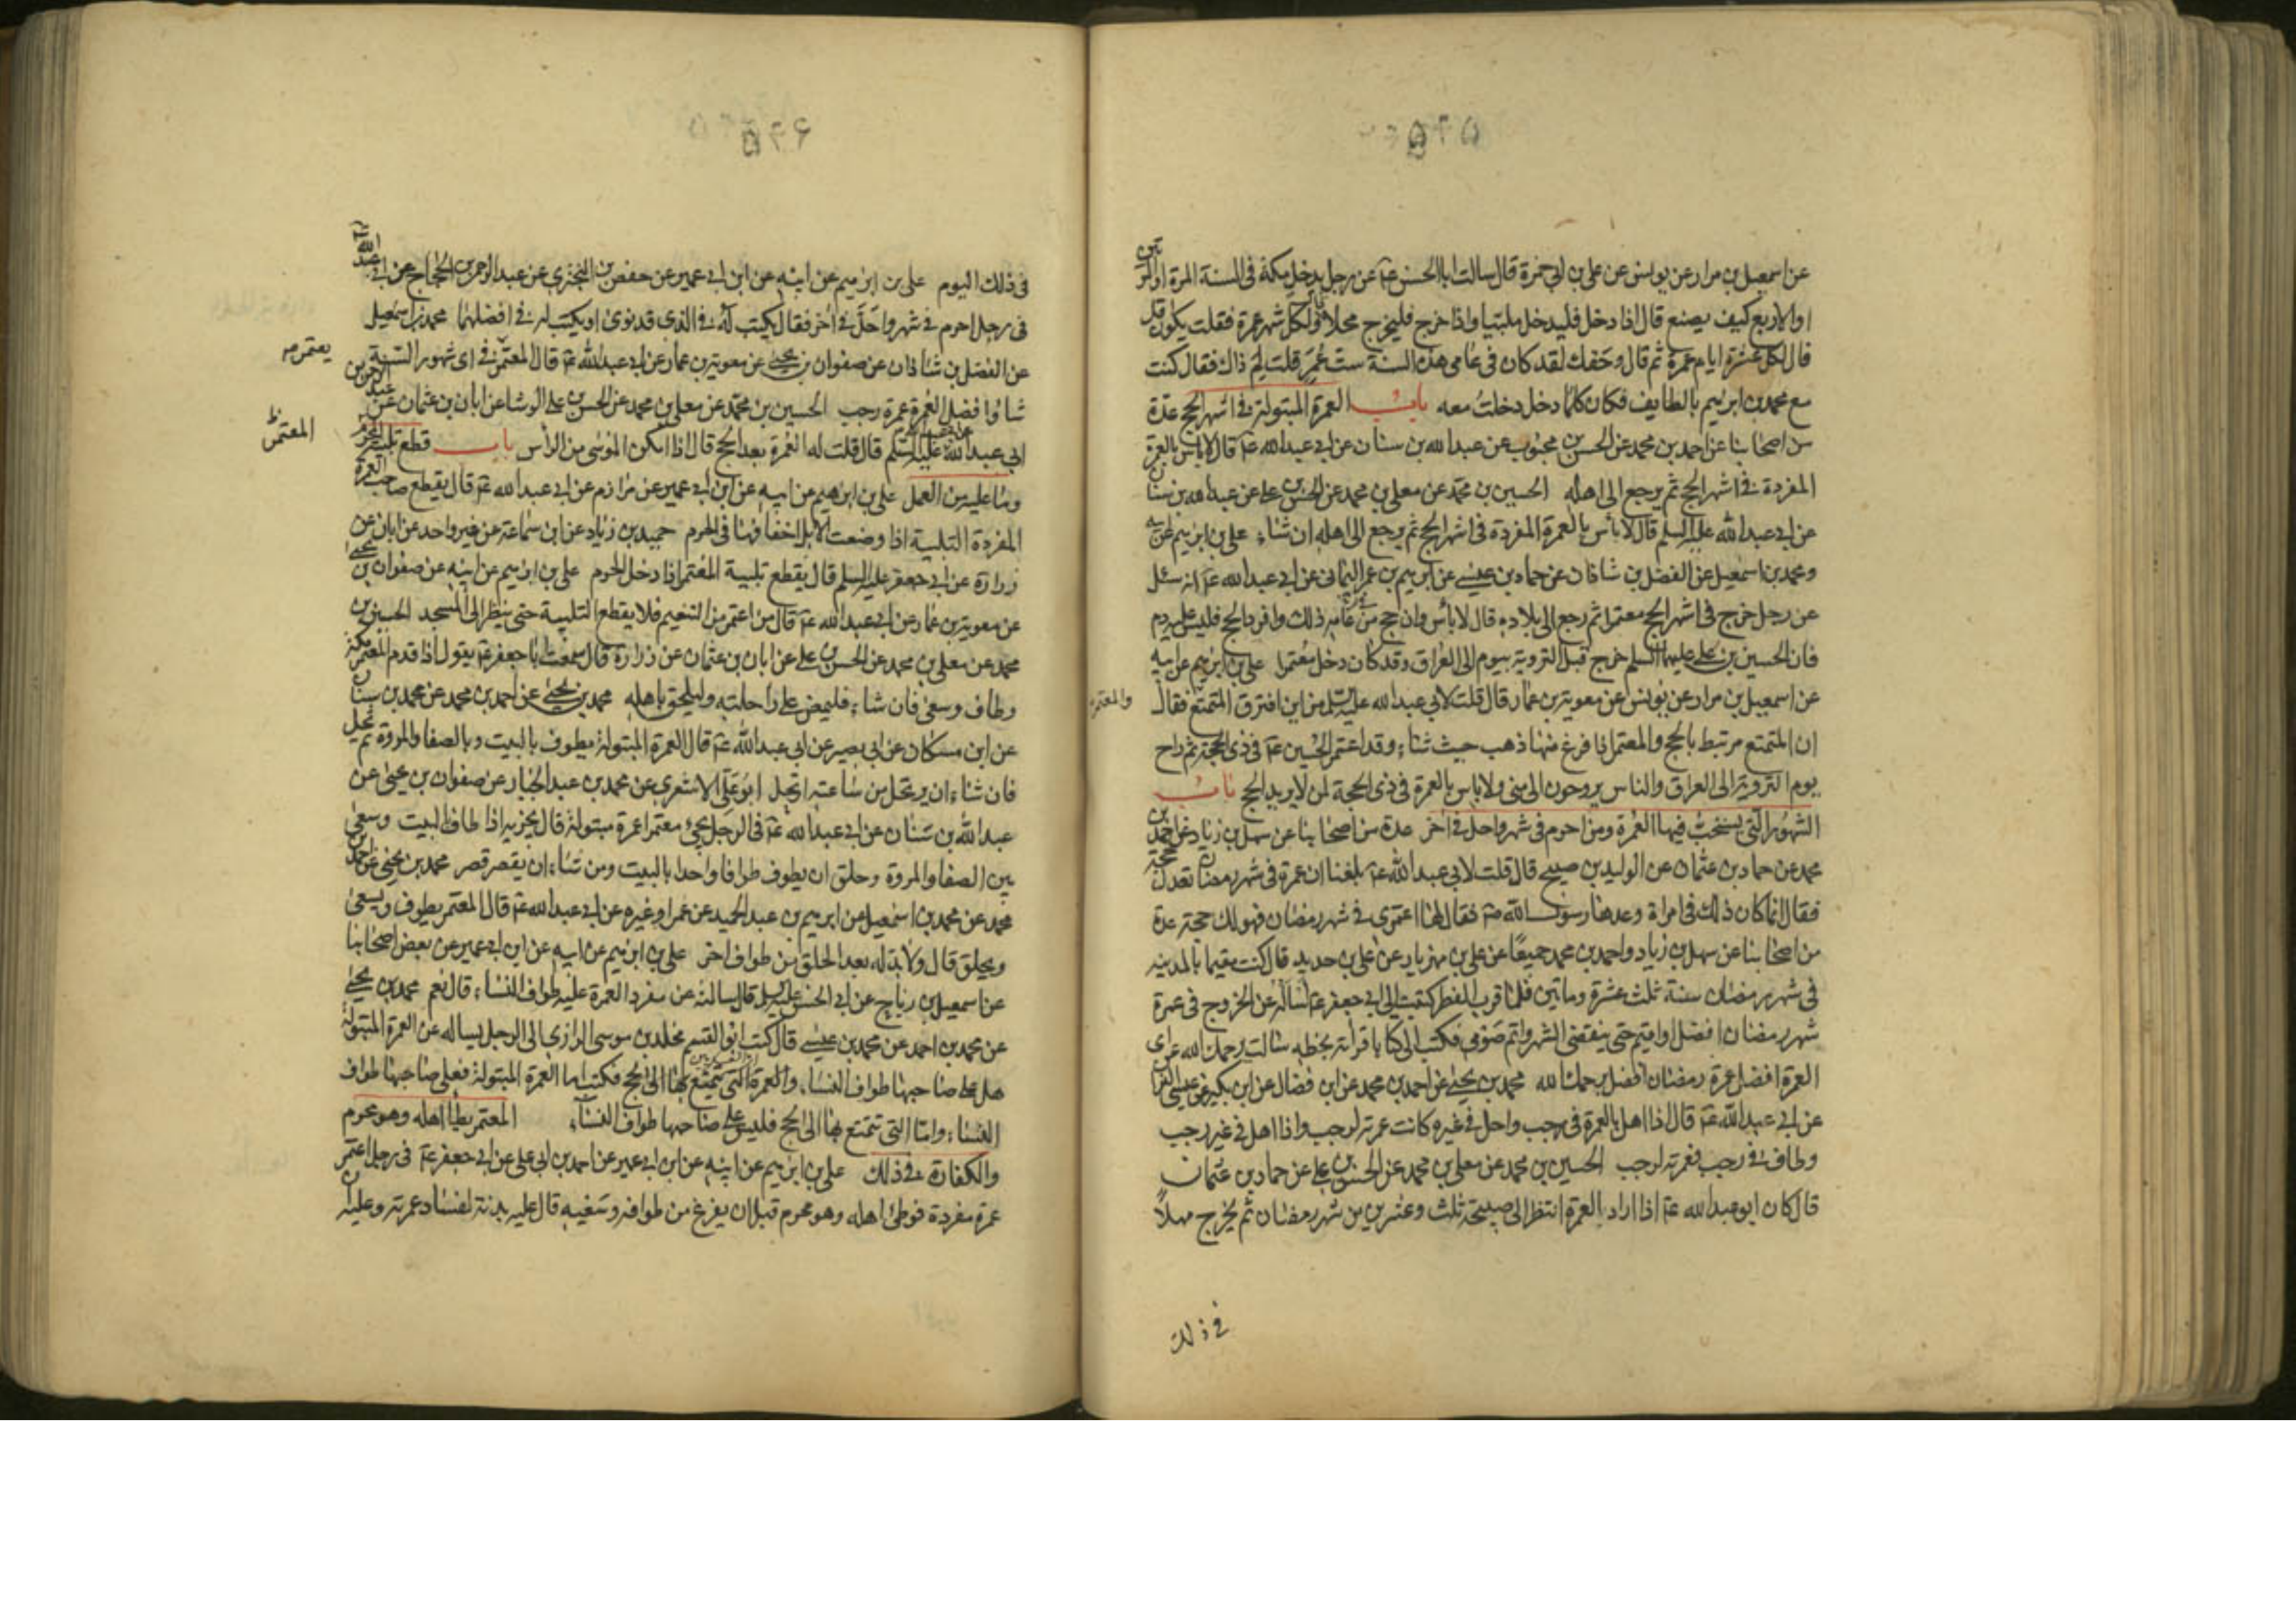 ۵۲۵
عن اسمعيل بن مرار عن يونس عن علي بن ابي حمزة قال سالت ابا الحسن عۤ عن رجل يدخل مكة في السنة المرة او المرتين
او الاربع كيف يصنع قال اذا دخل فليدخل ملبيا واذا خرج فليخرج محلا قال ولكل شهر عمرة فقلت يكون اقل
قال لكل عشرة ايام عمرة ثم قال وحقك لقد كان في عامي هذه السنة ست عُمَر قلت لِمَ ذاك فقال كنت
مع محمد بن ابرهيم بالطايف فكان كلما دخل دخلتُ معه باب العمرة المبتولة في اشهر الحج عدة
من اصحابنا عن احمد بن محمد عن الحسن بن محبوب عن عبد الله بن سنان عن ابي عبد الله عۤ قال لا باس بالعمرة
المفردة في اشهر الحج ثم يرجع الى اهله الحسين بن محمد عن معلى بن محمد عن الحسن بن علي عن عبد الله بن سنان
عن ابي عبد الله عليه السلم قال لا بأس بالعمرة المفردة في اشهر الحج ثم يرجع الى اهله ان شاء علي بن ابرهيم عن ابيه
ومحمد بن اسمعيل عن الفضل بن شاذان عن حماد بن عيسى عن ابرهيم بن عمر اليماني عن ابي عبد الله عۤ انه سئل
عن رجل خرج في اشهر الحج معتمرا ثم رجع الى بلاده قال لا بأس وان حج من عامه ذلك وافرد الحج فليس عليه دم
فان الحسين بن علي عليهما السلم خرج قبل التروية بيوم الى العراق وقد كان دخل معتمرا علي بن ابرهيم عن ابيه
عن اسمعيل بن مرار عن يونس عن معوية بن عمار قال قلت لابي عبد الله عليه السلم من اين افترق المتمتع فقال
والمعتمر
ان المتمتع مرتبط بالحج والمعتمر اذا فرغ منها ذهب حيث شاء وقد اعتمر الحسين عۤ في ذي الحجة ثم راح
يوم التروية الى العراق والناس يروحون الى منى ولا باس بالعمرة في ذي الحجة لمن لا يريد الحج باب
الشهور التي يستحب فيها العمرة ومن احرم في شهر واحل في آخر عدة من اصحابنا عن سهل بن زياد عن احمد بن
محمد عن حماد بن عثمان عن الوليد بن صبيح قال قلت لابي عبد الله عۤ بلغنا ان عمرة في شهر رمضان تعدل حجة
فقال انما كان ذلك في امراة وعدها رسول الله صۤ فقال لها اعتمري في شهر رمضان فهو لك حجة عدة
من اصحابنا عن سهل بن زياد واحمد بن محمد جميعًا عن علي بن مهزيار عن علي بن حديد قال كنت مقيما بالمدينة
في شهر رمضان سنة ثلث عشرة وماتين فلما قرب الفطر كتبت الى ابي جعفر عۤ اساله عن الخروج في عمرة
شهر رمضان افضل او اقيم حتى ينقضي الشهر واتم صومي فكتب الي كتابا قرأته بخطه سالت رحمك الله عن اي
العمرة افضل عمرة رمضان افضل يرحمك الله محمد بن يحيى عن احمد بن محمد عن ابن فضال عن ابن بكير عن عيسى الفراء
عن ابي عبد الله عۤ قال اذا اهل بالعمرة في رجب واحل في غيره كانت عمرته لرجب واذا اهل في غير رجب
وطاف في رجب فعمرته لرجب الحسين بن محمد عن معلى بن محمد عن الحسن بن علي عن حماد بن عثمان
قال كان ابو عبد الله عۤ اذا اراد العمرة انتظر الى صبيحة ثلث وعشرين من شهر رمضان ثم يخرج مهلاً
في ذلك
۵۲۶
في ذلك اليوم علي بن ابرهيم عن ابيه عن ابن ابي عمير عن حفص بن البختري عن عبد الرحمن بن الحجاج عن ابي عبد الله عۤ
في رجل احرم في شهر واحَلَّ في آخر فقال يكتب له في الذي قد نوى او يكتب له في افضلهما محمد بن اسمعيل
عن الفضل بن شاذان عن صفوان بن يحيى عن معوية بن عمار عن ابي عبد الله عۤ قال المعتمر في اي شهور السنة
يعتمر
شاء وافضل العمرة عمرة رجب الحسين بن محمد عن معلى بن محمد عن الحسن بن علي الوشا عن ابان بن عثمان عن عبد الرحمن بن
ابي عبد الله عليه السلم قال قلت له العمرة بعد الحج قال اذا امكن الموسى من الرأس باب قطع تلبية المحرم
المعتمر
وما عليه من العمل علي بن ابرهيم عن ابيه عن ابن ابي عمير عن مرازم عن ابي عبد الله عۤ قال يقطع صاحب العمرة
المفردة التلبية اذا وضعت الابل اخفافها في الحرم حميد بن زياد عن ابن سماعة عن غير واحد عن ابان عن
زرارة عن ابي جعفر عليه السلم قال يقطع تلبية المعتمر اذا دخل الحرم علي بن ابرهيم عن ابيه عن صفوان بن يحيى
عن معوية بن عمار عن ابي عبد الله عۤ قال من اعتمر من التنعيم فلا يقطع التلبية حتى ينظر الى المسجد الحسين بن
محمد عن معلى بن محمد عن الحسن بن علي عن ابان بن عثمان عن زرارة قال سمعت ابا جعفر عۤ يقول اذا قدم المعتمر مكة
وطاف وسعى فان شاء فليمض على راحلته وليلحق باهله محمد بن يحيى عن احمد بن محمد عن محمد بن سنان
عن ابن مسكان عن ابي بصير عن ابي عبد الله عۤ قال العمرة المبتولة يطوف بالبيت وبالصفا والمروة ثم يحل
فان شاء ان يرتحل من ساعته ارتحل ابو علي الاشعري عن محمد بن عبد الجبار عن صفوان بن يحيى عن
عبد الله بن سنان عن ابي عبد الله عۤ في الرجل يجئ معتمرا عمرة مبتولة قال يجزيه اذا طاف بالبيت وسعى
بين الصفا والمروة وحلق ان يطوف طوافا واحدا بالبيت ومن شاء ان يقصر قصر محمد بن يحيى عن احمد بن
محمد عن محمد بن اسمعيل عن ابرهيم بن عبد الحميد عن عمر او غيره عن ابي عبد الله عۤ قال المعتمر يطوف ويسعى
ويحلق قال ولا بد له بعد الحلق من طواف اخر علي بن ابرهيم عن ابيه عن ابن ابي عمير عن بعض اصحابنا
عن اسمعيل بن رباح عن ابي الحسن عليه السلم قال سالته عن مفرد العمرة عليه طواف النساء قال نعم محمد بن يحيى
عن محمد بن احمد عن محمد بن عيسى قال كتب ابو القسم مخلد بن موسى الرازي الى الرجل يساله عن العمرة المبتولة
هل على صاحبها طواف النساء والعمرة التي يتمتع بها الى الحج فكتب اما العمرة المبتولة فعلى صاحبها طواف
النساء واما التي يتمتع بها الى الحج فليس على صاحبها طواف النساء المعتمر يطأ اهله وهو محرم
والكفارة في ذلك علي بن ابرهيم عن ابيه عن ابن ابي عمير عن احمد بن ابي علي عن ابي جعفر عۤ في رجل اعتمر
عمرة مفردة فوطئ اهله وهو محرم قبل ان يفرغ من طوافه وسعيه قال عليه بدنة لفساد عمرته وعليه ان